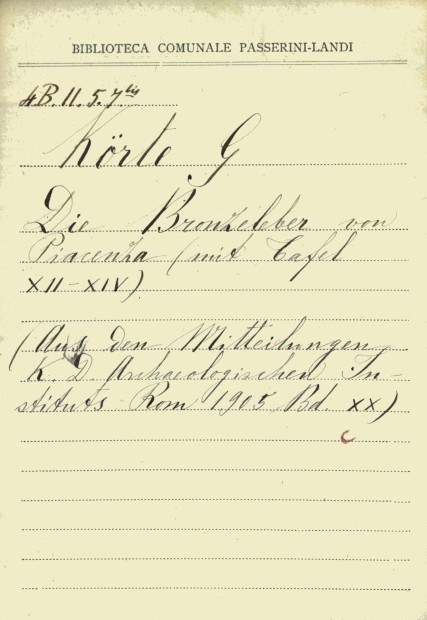 BIBLIOTECA COMUNALE PASSERINI-LANDI
4B.II.5.7bis
Körte G
Die Bronzeleber von
Piacenza (mit Tafel
XII-XIV)
(Aus den Mitteilungen
K. D. Archaeologischen In-
stituts Rom 1905 Bd. XX)